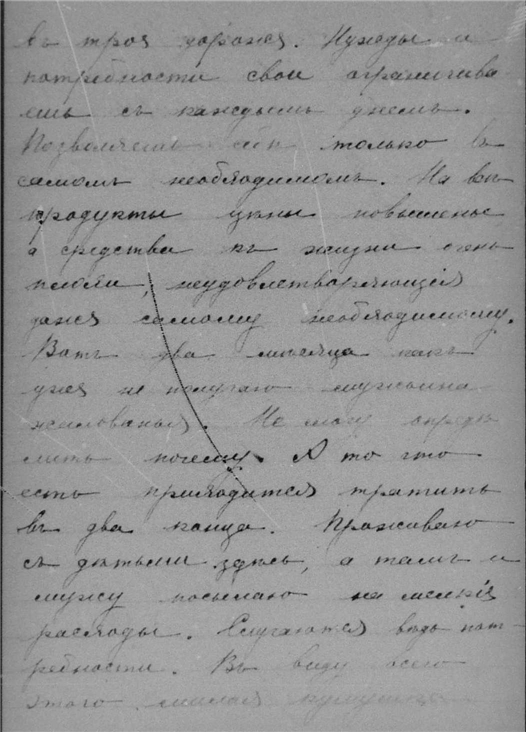 въ троя дороже. Нужды и
потребности свои ограничива
ешь съ каждымъ днемъ.
Позволяешь себѣ только въ
самомъ необходимомъ. На всѣ
продукты цѣны повышены,
а средства къ жизни очень
плохи, неудовлетворяющія
даже самому необходимому.
Вотъ два мѣсяца какъ
уже не получаю мужьина
жалованья. Не могу опредѣ
лить почему. А то что
есть приходится тратить
въ два конца. Проживаю
съ дѣтьми здѣсь, а тамъ и
мужу посылаю на мелкія
расходы. Случаются ведь пот
ребности. Въ виду всего
этого милая